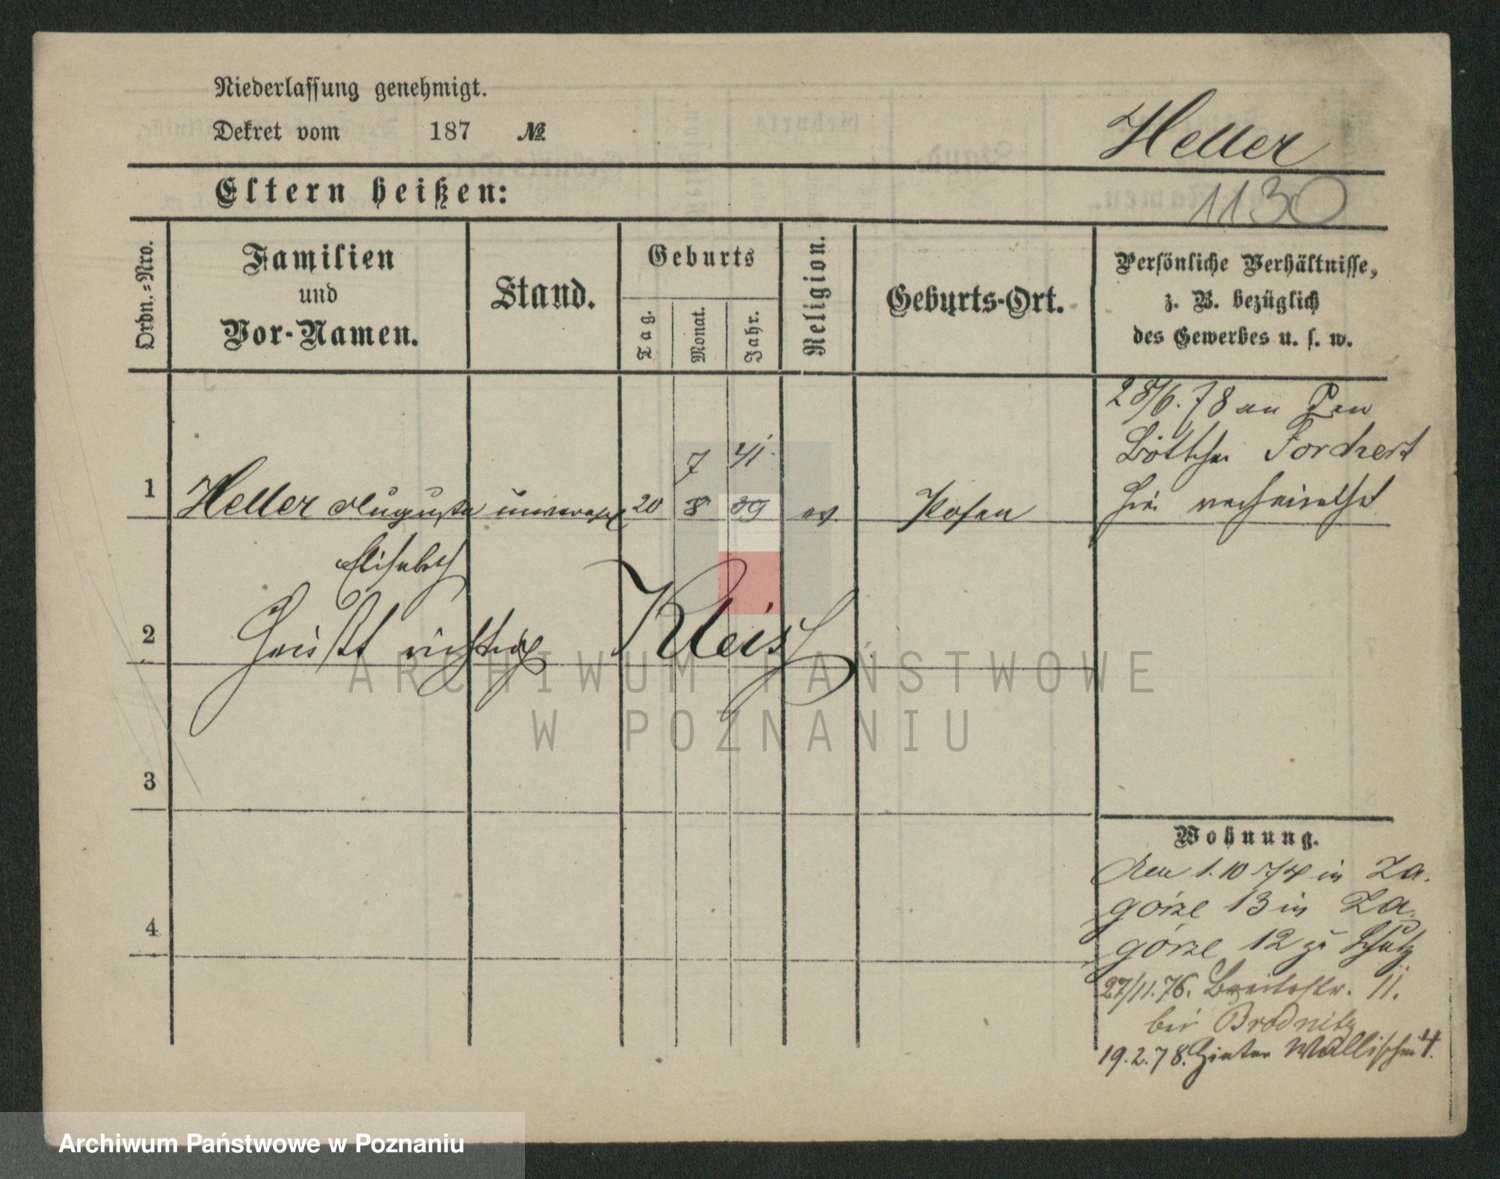 Niederlassung genehmigt.
Dekret vom 187 №
Heller
1130
Eltern heißen:
Ordn.-Nro.
Familien
und
Vor-Namen.
Stand.
Geburts
Tag.
Monat.
Jahr.
Religion.
Geburts-Ort.
Persönliche Verhältnisse,
z. B. bezüglich
des Gewerbes u. s. w.
28/6.78 an den
Böttcher Forchert
hier verheirathet
7 41.
1 Heller Auguste unverehl 20 8 39 ev. Posen
Elisabeth
2 heißt richtig Kleist
3
4
Wohnung.
Den 1.10 74 in Za-
górze 13 in Za-
górze 12 z. Schulz
27/11.76. Breitestr. 11.
bei Brodnitz
19.2.78. Hinter Wallischei 4.
ARCHIWUM PAŃSTWOWE
W POZNANIU
Archiwum Państwowe w Poznaniu